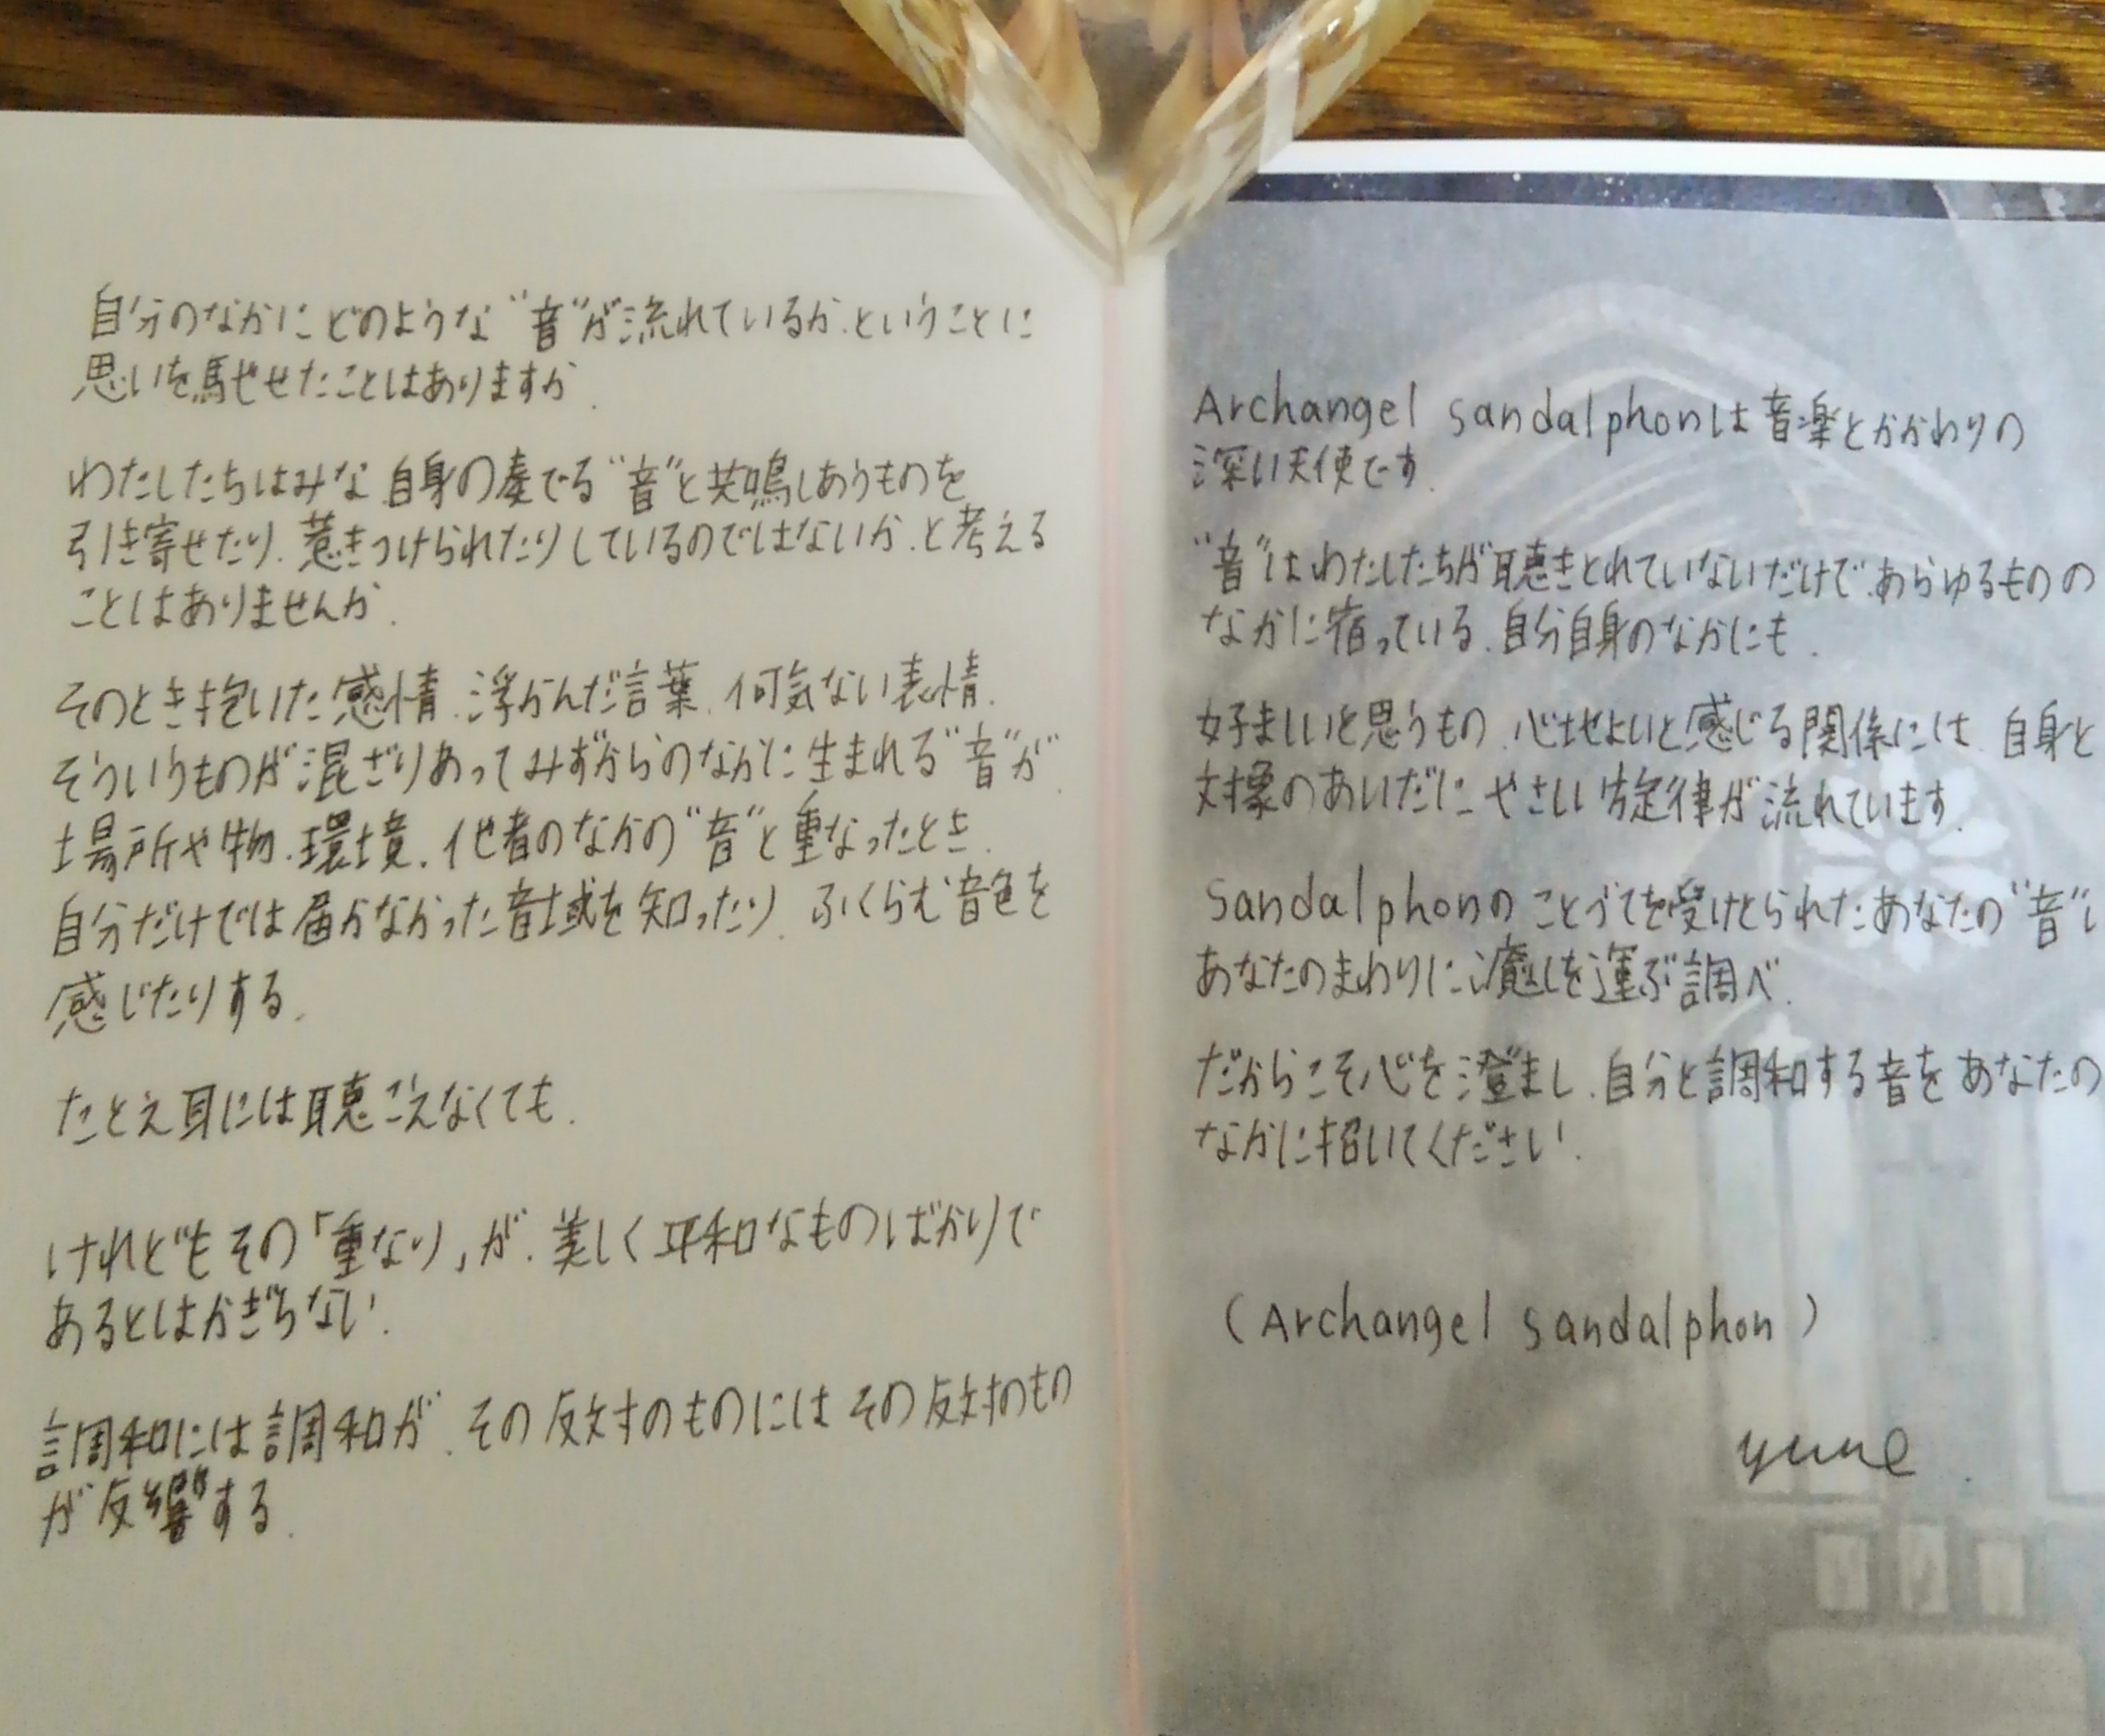 自分のなかにどのような"音"が流れているか、ということに
思いを馳せたことはありますか.
わたしたちはみな 自身の奏でる"音"と共鳴しあうものを
引き寄せたり、惹きつけられたりしているのではないか、と考える
ことはありませんか.
そのとき抱いた感情、浮かんだ言葉、何気ない表情、
そういうものが混ざりあってみずからのなかに生まれる"音"が、
場所や物、環境、他者のなかの"音"と重なったとき、
自分だけでは届かなかった音域を知ったり、ふくらむ音色を
感じたりする.
たとえ耳には聴こえなくても.
けれどもその「重なり」が、美しく平和なものばかりで
あるとはかぎらない.
調和には調和が、その反対のものには その反対のもの
が反響する.
Archangel sandalphonは音楽とかかわりの
深い天使です.
"音"はわたしたちが聴きとれていないだけで、あらゆるものの
なかに宿っている、自分自身のなかにも.
好ましいと思うもの、心地よいと感じる関係には、自身と
対象のあいだに やさしい旋律が流れています.
sandalphonのことづてを受けとられたあなたの"音"
あなたのまわりに癒しを運ぶ調べ.
だからこそ心を澄まし、自分と調和する音を あなたの
なかに招いてください.
(Archangel sandalphon)
yune